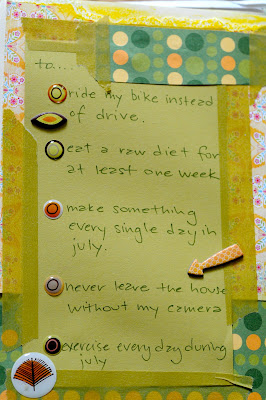 to....
ride my bike instead
of drive.
eat a raw diet for
at least one week
make something
every single day in
july.
never leave the house
without my camera
exercise every day during
july